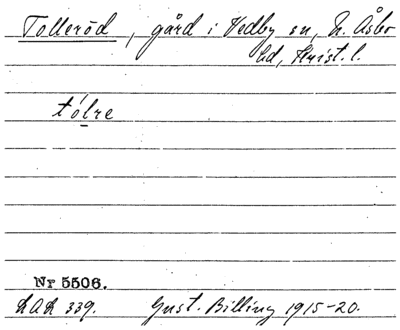 Tolleröd, gård i Vedby sn, N. Åsbo
hd, Krist. l.
tólre
Nr 5506.
LAL 339. Gust. Billing 1915-20.